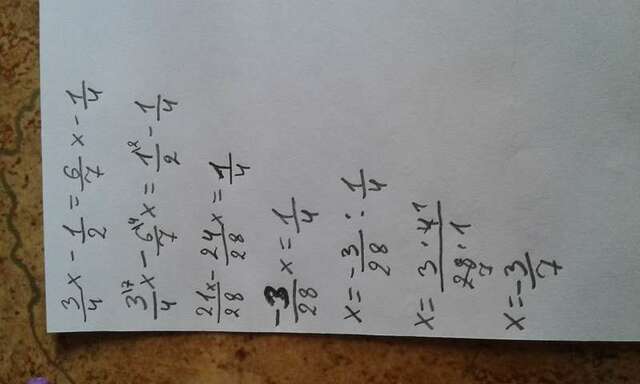 3/4 x - 1/2 = 6/7 x - 1/4
3\7/4 x - 6\4/7 x = 1\2/2 - 1/4
21x/28 - 24/28 x = 1/4
-3/28 x = 1/4
x = -3/28 : 1/4
x = 3 · 4 1/28 · 1 7
x = -3/7